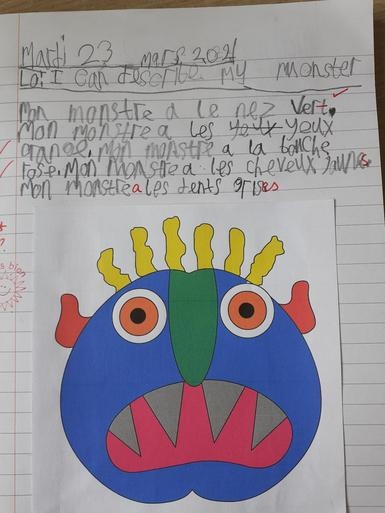 Mardi 23 mars 2021
Lo: I can describe my monster
Mon monstre a le nez vert.
Mon monstre a les yeux
orange. Mon monstre a la bouche
rose. Mon monstre a les cheveux jaunes
Mon monstre a les dents grises